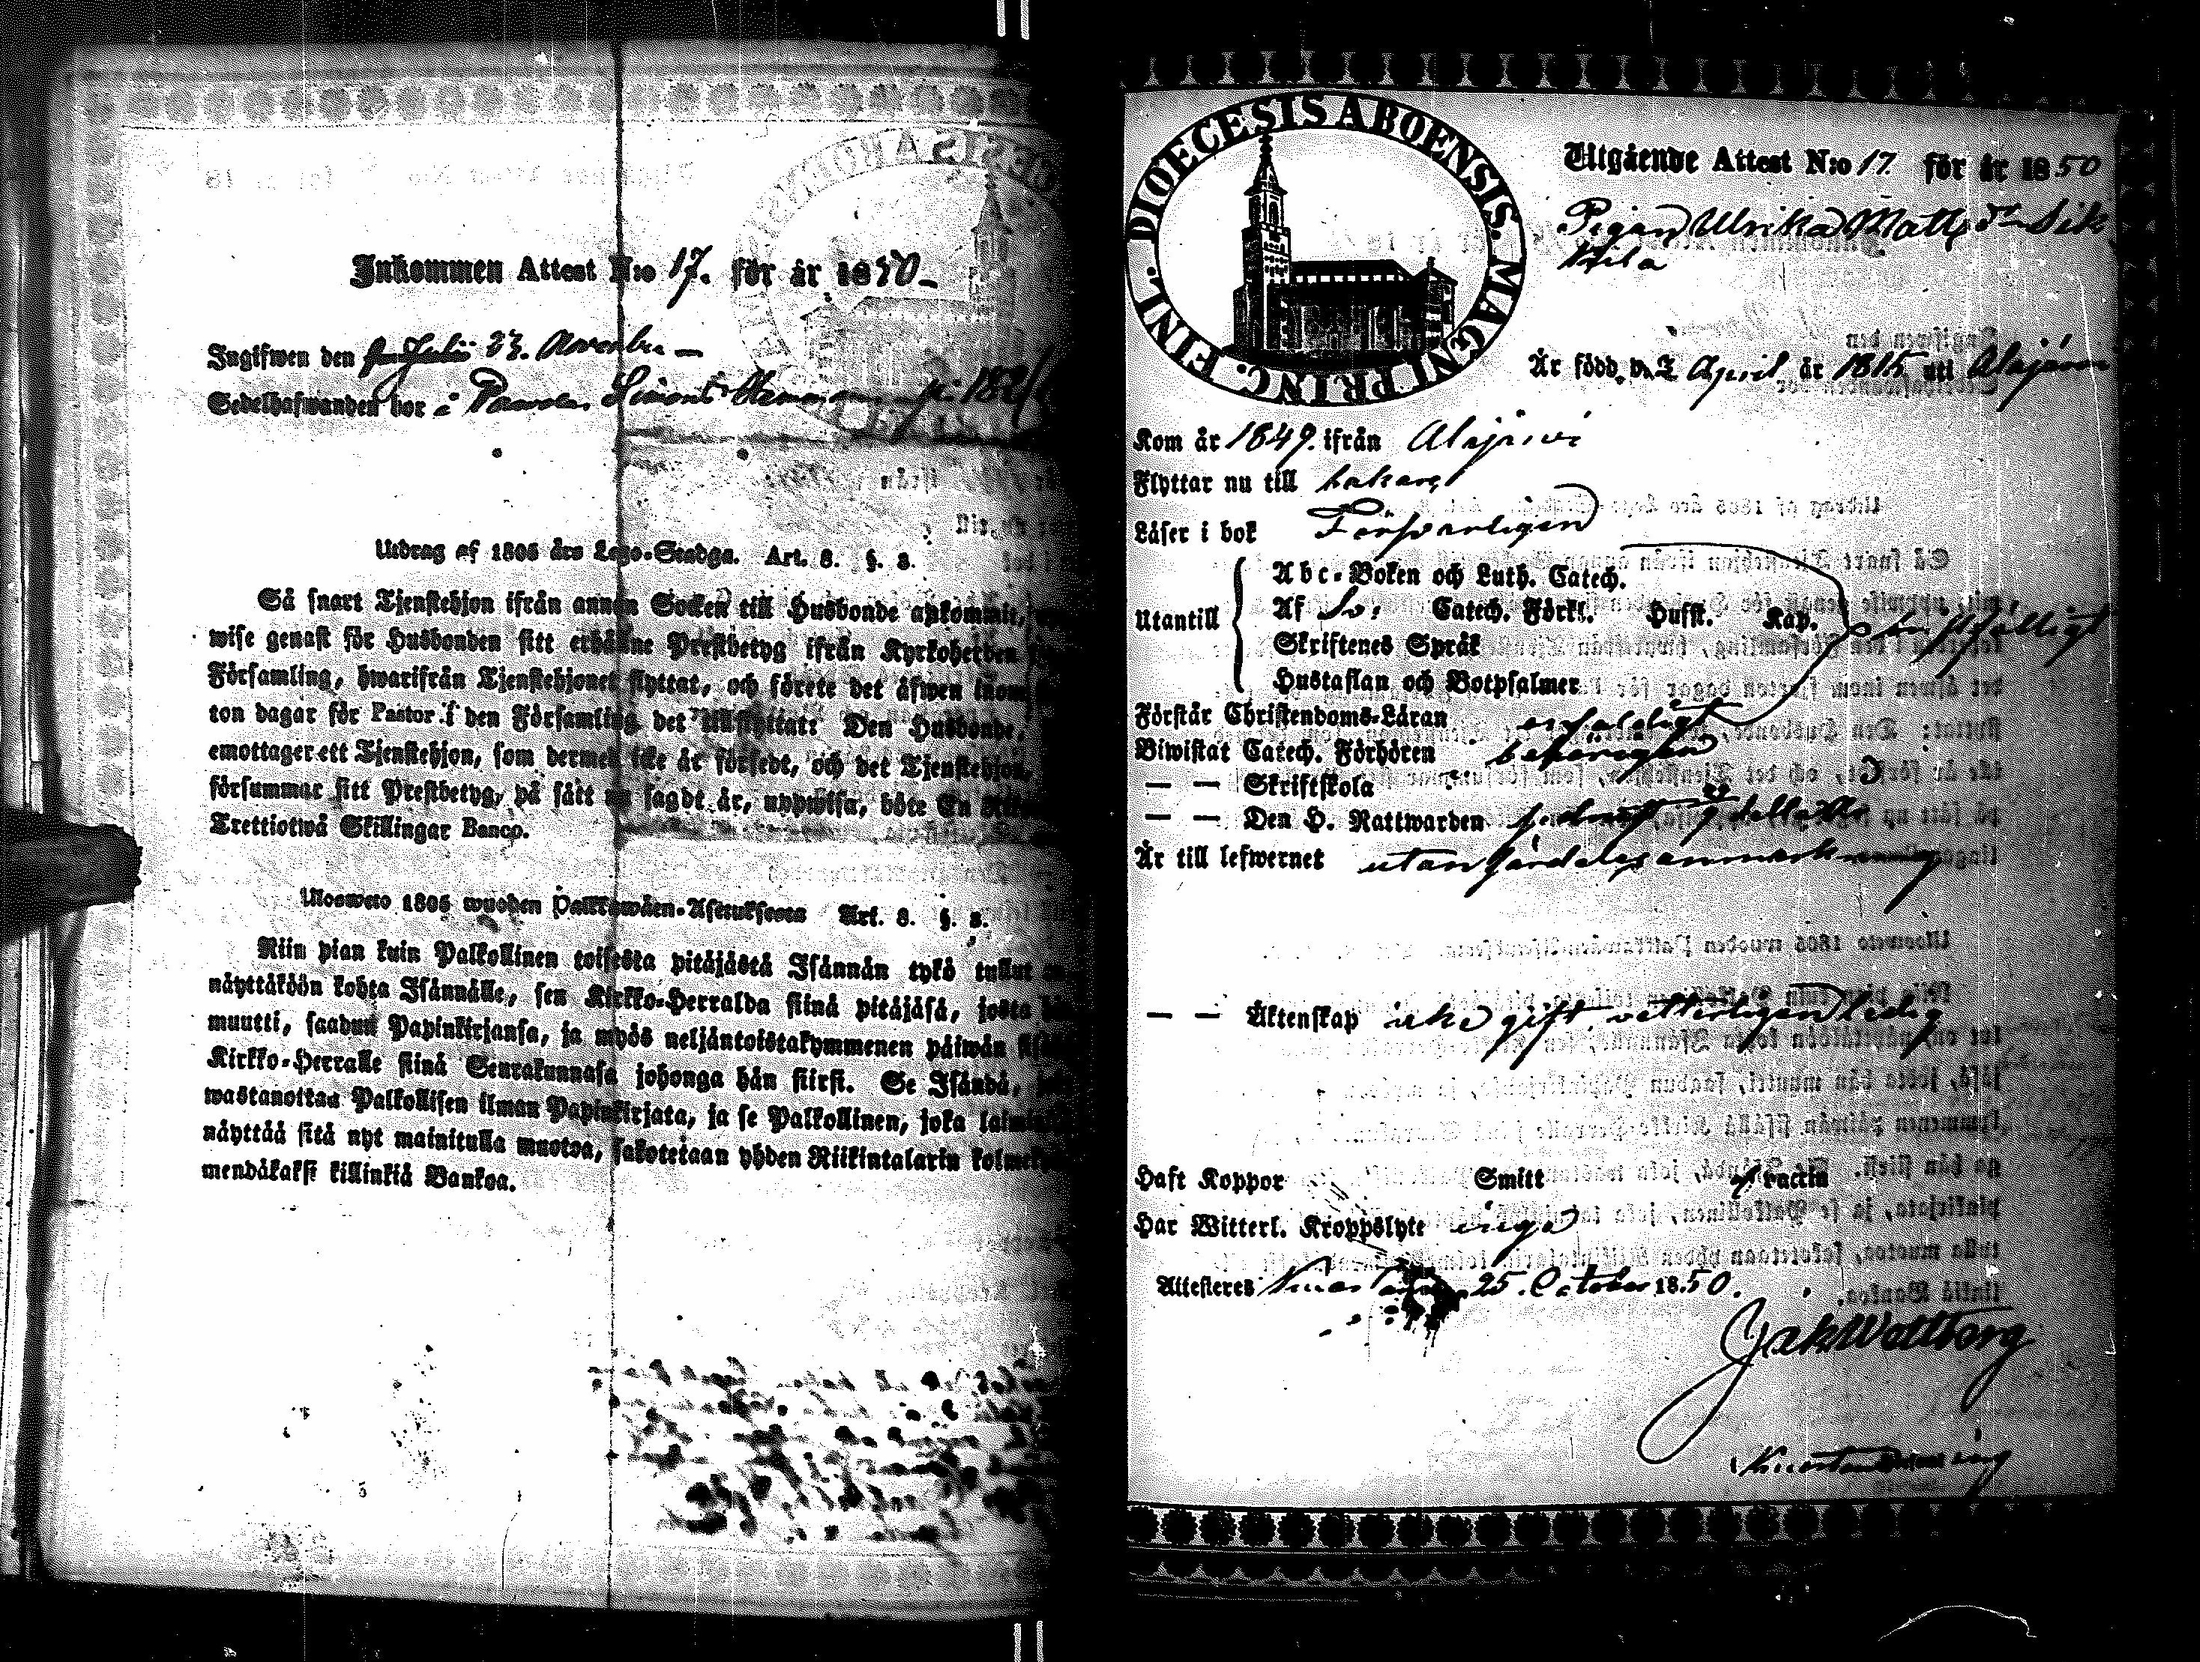 Inkommen Attest N:o 17. för år 1850
Ingifwen den 23. November
Sedelhafwanden bor i Simons
Utdrag af 1805 års Lego-Stadga. Art. 8. §. 3.
Så snart Tjenstehjon ifrån annan Socken till Husbonde ankommit,
wise genast för Husbonden sitt erhållne Prestbetyg ifrån Kyrkoherden
Församling, hwarifrån Tjenstehjonet flyttat, och förete det äfwen inom
ton dagar för Pastor i den Församling det tillflyttat: Den Husbonde,
emottager ett Tjenstehjon, som dermed icke är försedt, och det Tjenstehjon,
försummar sitt Prestbetyg, på sätt nu sagdt är, uppwisa, böte En
Trettiotwå Skillingar Banco.
Ulosweto 1805 wuoden Palkkawäen-Asetuksesta Art. 8. §. 3.
Niin pian kuin Palkollinen toisesta pitäjästä Isännän tykö tullut
näyttäköön kohta Isännälle, sen Kirkko-Herralda siinä pitäjäsä, josta
muutti, saadun Papinkirjansa, ja myös neljäntoistakymmenen päiwän
Kirkko-Herralle siinä Seurakunnasa johonga hän siirsi. Se Isändä,
wastanottaa Palkollisen ilman Papinkirjata, ja se Palkollinen, joka
näyttää sitä nyt mainitulla muotoa, sakotetaan yhden Riikintalarin
mendäkaksi killinkiä Bankoa.
DIOECESIS ABOENSIS. MAGNI PRINC. FINL.
Utgående Attest N:o 17. för år 1850
Pigan Ulrika Matts dr
Är född. d. 2 April år 1815 uti Alajärvi
Kom år 1849. ifrån Alajärvi
Flyttar nu till
Läser i bok Försvarligen
Abc-Boken och Luth. Catech.
Utantill Af Sv: Catech. Förkl. Hufst. Kap.
Skriftenes Språk
Hustaflan och Botpsalmer
Förstår Christendoms-Läran enfaldigt
Biwistat Catech. Förhören behörigen
— — Skriftskola
— — Den H. Nattwarden
Är till lefwernet utan särdeles anmärkning
— — Äktenskap icke gift, vetterligen ledig
Haft Koppor Smitt Vaccin
Har Witterl. Kroppslyte inga
Attesteres 25. October 1850.
Jak Wallberg